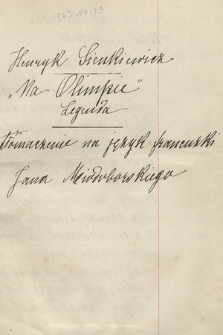 Henryk Sienkiewicz
„Na Olimpie”
Legenda
Tłomaczenie na język francuski
Jana Miodoborskiego